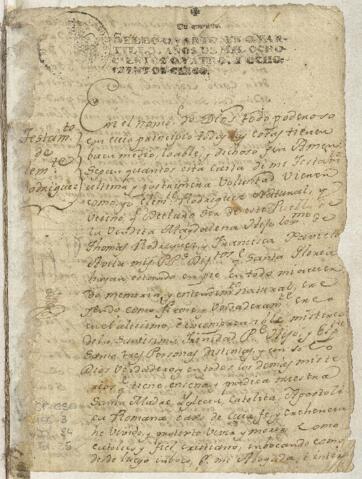 Un quartillo
SELLO QVARTO, VN QVAR-
TILLO, AÑOS DE MIL OCHO-
CIENTOS QVATRO, Y OCHO-
CIENTOS CINCO.
Testam.to
de
Clem.te
Rodriguez
En el nombre de Dios todo poderoso
con cuio principio todas las cosas tienen
buen medio, loable, y dichoso fin Amen.
Sepan quantos esta Carta de mi Testam.to
ultima y postrimera Voluntad Vieren
como yo Clem.te Rodriguez Natural, y
Vecino
la Vendita Magdalena Hijo
Thomas Rodriguez, y Francisca
Avila mis P.P. Difuntos Santa Gloria
hayan estando en pie en todo mi acuer
do memoria, y entendim.to natural, cre
yendo como firme y verdaderam.te creo
en el altissimo, è incomprensible misterio
de la Santissima Trinidad P.e Hijo, y Esp.tu
Santo tres Personas distintas, y un solo
Dios Verdadero, y en todos los demas miste
rios q.e tiene, enseña, y predica nuestra
Santa Madre Yglecia Catolica Apostolica
Romana, baxo de cuia fe, y crehencia
he vivido, y protesto vivir y morir como
catolico y fiel cristiano, invocando como
desde luego imboco p.r mi Abogada, è inter